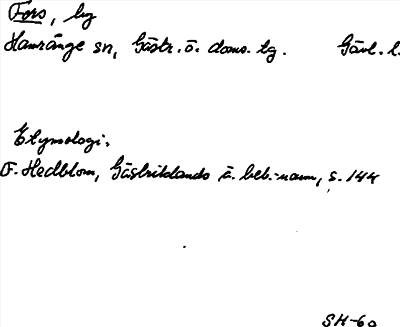 Fors, by
Hamrånge sn, Gästr. ö. doms. tg. Gävl. l.
Etymologi.
F. Hedblom, Gästriklands ä. beb.-namn, s. 144
SH-60